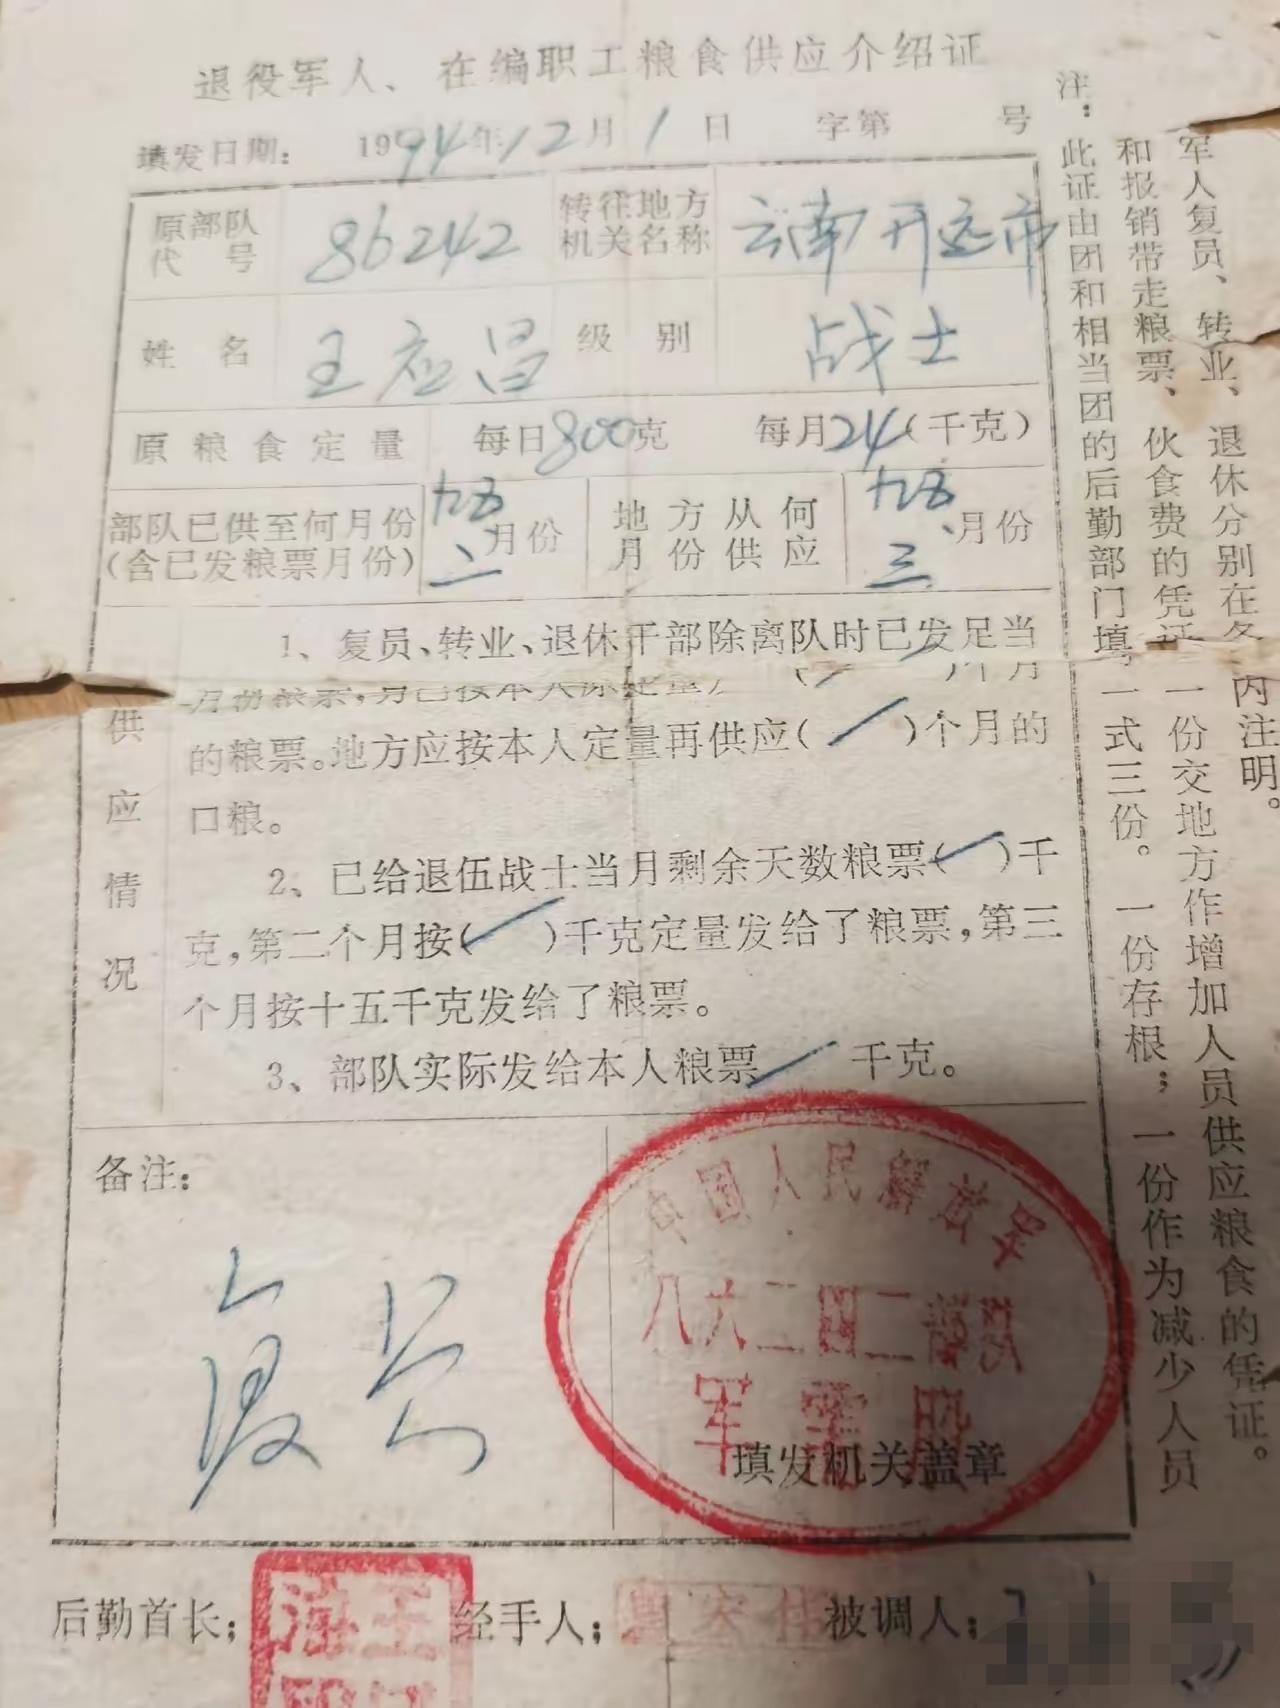 退役军人、在编职工粮食供应介绍证
填发日期： 1994年12月1日 字第 号
原部队代号 86242 转往地方机关名称 云南开远市
姓名 王应昌 级别 战士
原粮食定量 每日800克 每月24(千克)
部队已供至何月份(含已发粮票月份) 九五、二月份 地方从何月份供应 九五、三月份
供应情况
1、复员、转业、退休干部除离队时已发足当
月份粮票，另已按本人原定量 )个月
的粮票。地方应按本人定量再供应( )个月的
口粮。
2、已给退伍战士当月剩余天数粮票( )千
克，第二个月按( )千克定量发给了粮票，第三
个月按十五千克发给了粮票。
3、部队实际发给本人粮票 千克。
备注：
复员
中国人民解放军
八六二四二部队
军需股
填发机关盖章
后勤首长； 经手人； 被调人；
注：
此证由团和相当团的后勤部门填 一式三份。一份存根；一份作为减少人员
和报销带走粮票、伙食费的凭证 一份交地方作增加人员供应粮食的凭证。
军人复员、转业、退休分别在各 内注明。